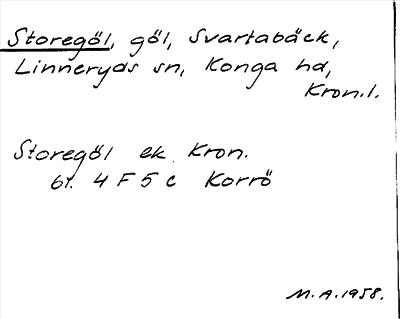 Storegöl, göl, Svartabäck,
Linneryds sn, Konga hd,
Kron.l.
Storegöl ek. Kron.
bl. 4 F 5 c Korrö
M.A.1958.